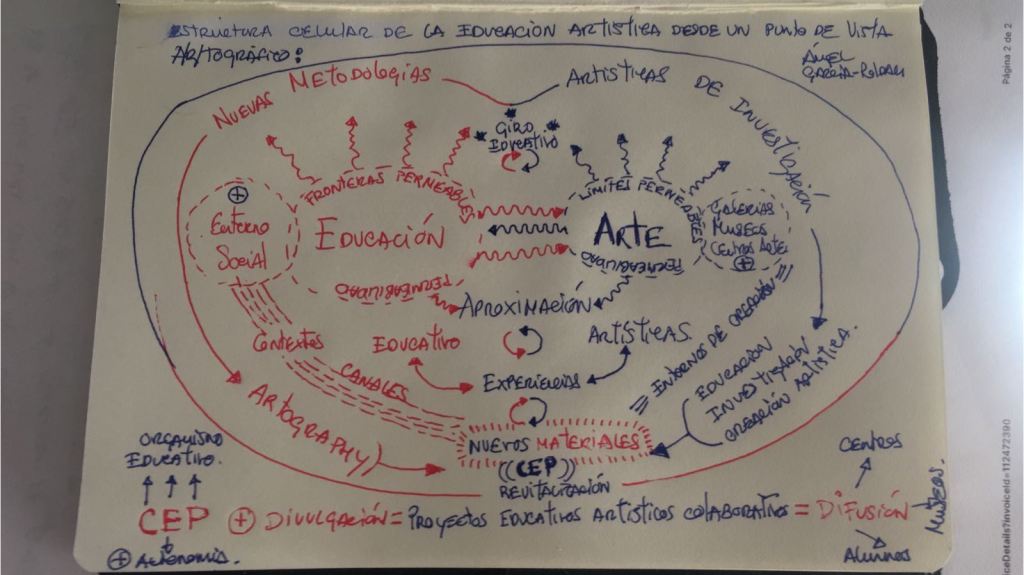 ESTRUCTURA CELULAR DE LA EDUCACIÓN ARTÍSTICA DESDE UN PUNTO DE VISTA
AR/TOGRÁFICO:
ÁNGEL
GARCÍA-ROLDÁN
NUEVAS METODOLOGÍAS
ARTÍSTICAS DE INVESTIGACIÓN
GIRO
EDUCATIVO
FRONTERAS PERMEABLES
LÍMITES PERMEABLES
⊕
Entorno
Social
EDUCACIÓN
ARTE
GALERÍAS
MUSEOS
CENTROS ARTE
⊕
PERMEABILIDAD
PERMEABILIDAD
APROXIMACIÓN
Contextos
EDUCATIVO
ARTÍSTICAS
CANALES
EXPERIENCIAS
= ENTORNOS DE CREACIÓN =
EDUCACIÓN
INVESTIGACIÓN
CREACIÓN ARTÍSTICA.
ARTOGRAPHY)
NUEVOS MATERIALES
((CEP))
REVITALIZACIÓN
ORGANISMO
EDUCATIVO.
CENTROS
CEP ⊕ DIVULGACIÓN = PROYECTOS EDUCATIVOS ARTÍSTICOS COLABORATIVOS = DIFUSIÓN
MUSEOS.
⊕ AUTONOMIA.
Alumnos
Página 2 de 2
iceDetails?invoiceId=112472390